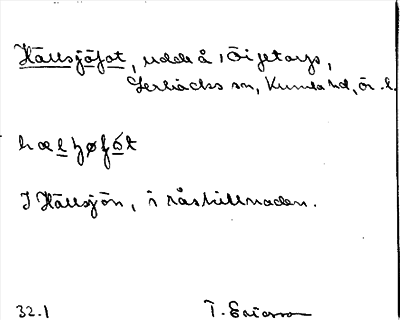 Hällsjöfat, udde å , Öijetorps,
Lerbäcks sn, Kumla hd, ör. l.
hælʒøfát
I Hällsjön, i råskillnaden.
32.1 T. Ericsson